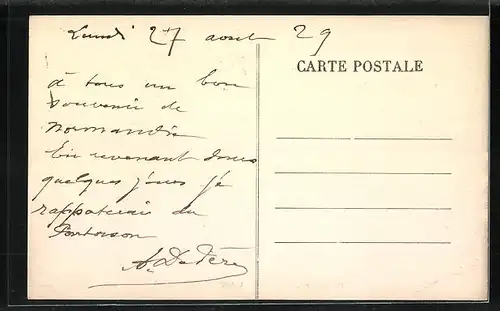 Lundi 27 aout 29
CARTE POSTALE
à tous un bon
souvenir de
Normandie
En revenant dans
quelques jours je
rapporterais du
Pontorson